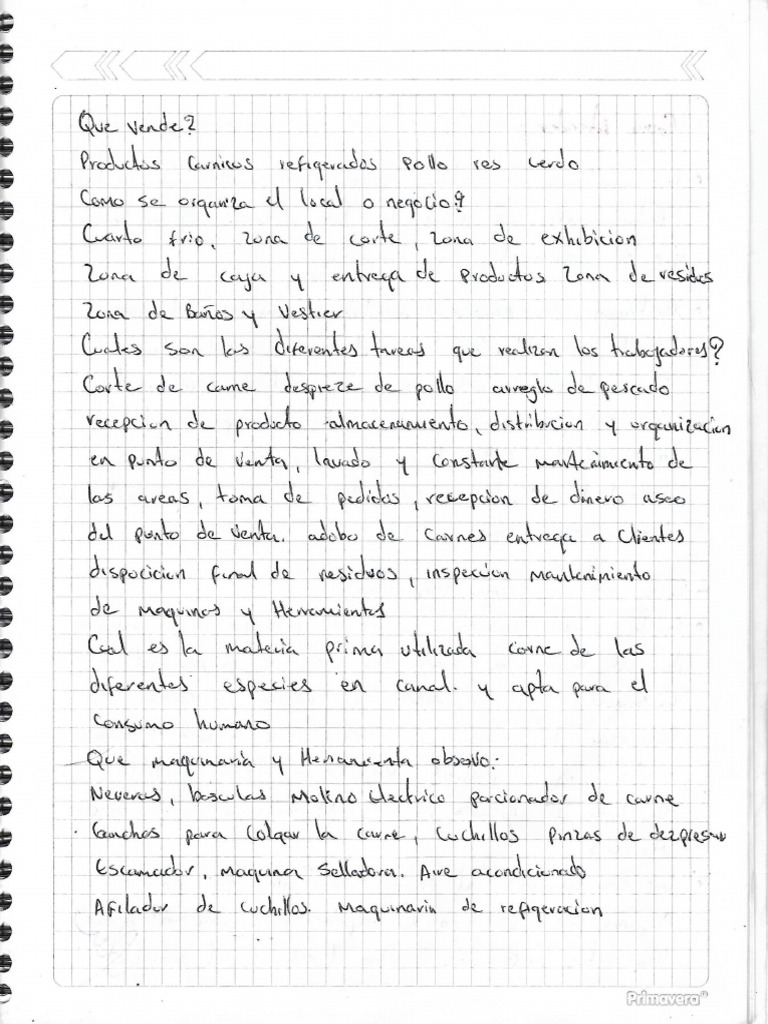 Que vende?
Productos Carnicos refigerados pollo res cerdo
Como se organiza el local o negocio?
Cuarto frio, zona de corte, zona de exhibicion
Zona de caja y entrega de Productos Zona de residos
Zona de Baños y Vestier
Cuales son las diferentes tareas que realizan los trabajadores?
Corte de carne despreze de pollo arreglo de pescado
recepcion de producto almacenamiento, distribucion y organizacion
en punto de venta, lavado y constante mantenimiento de
las areas, toma de pedidos, recepcion de dinero aseo
del punto de venta. adobo de Carnes entrega a Clientes
dispocicion final de residuos, inspeccion mantenimiento
de maquinas y Herramientas
Cual es la materia prima utilizada carne de las
diferentes especies en canal. y apta para el
Consumo humano
Que maquinaria y Herramienta observo:
Neveras, basculas Molino Electrico porcionador de carne
Ganchos para Colgar la Carne, Cuchillos Pinzas de dezprese
Escamador, maquina Selladora. Aire acondicionado
Afilador de Cuchillos. Maquinaria de refigeracion
Primavera